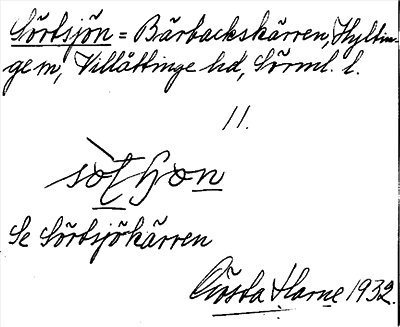 Sörtsjön = Bärbackskärren, Hyltin-
ge m, Villåttinge hd, Sörml. l.
11.
Se Sörtsjökärren
Gösta Harne 1932.